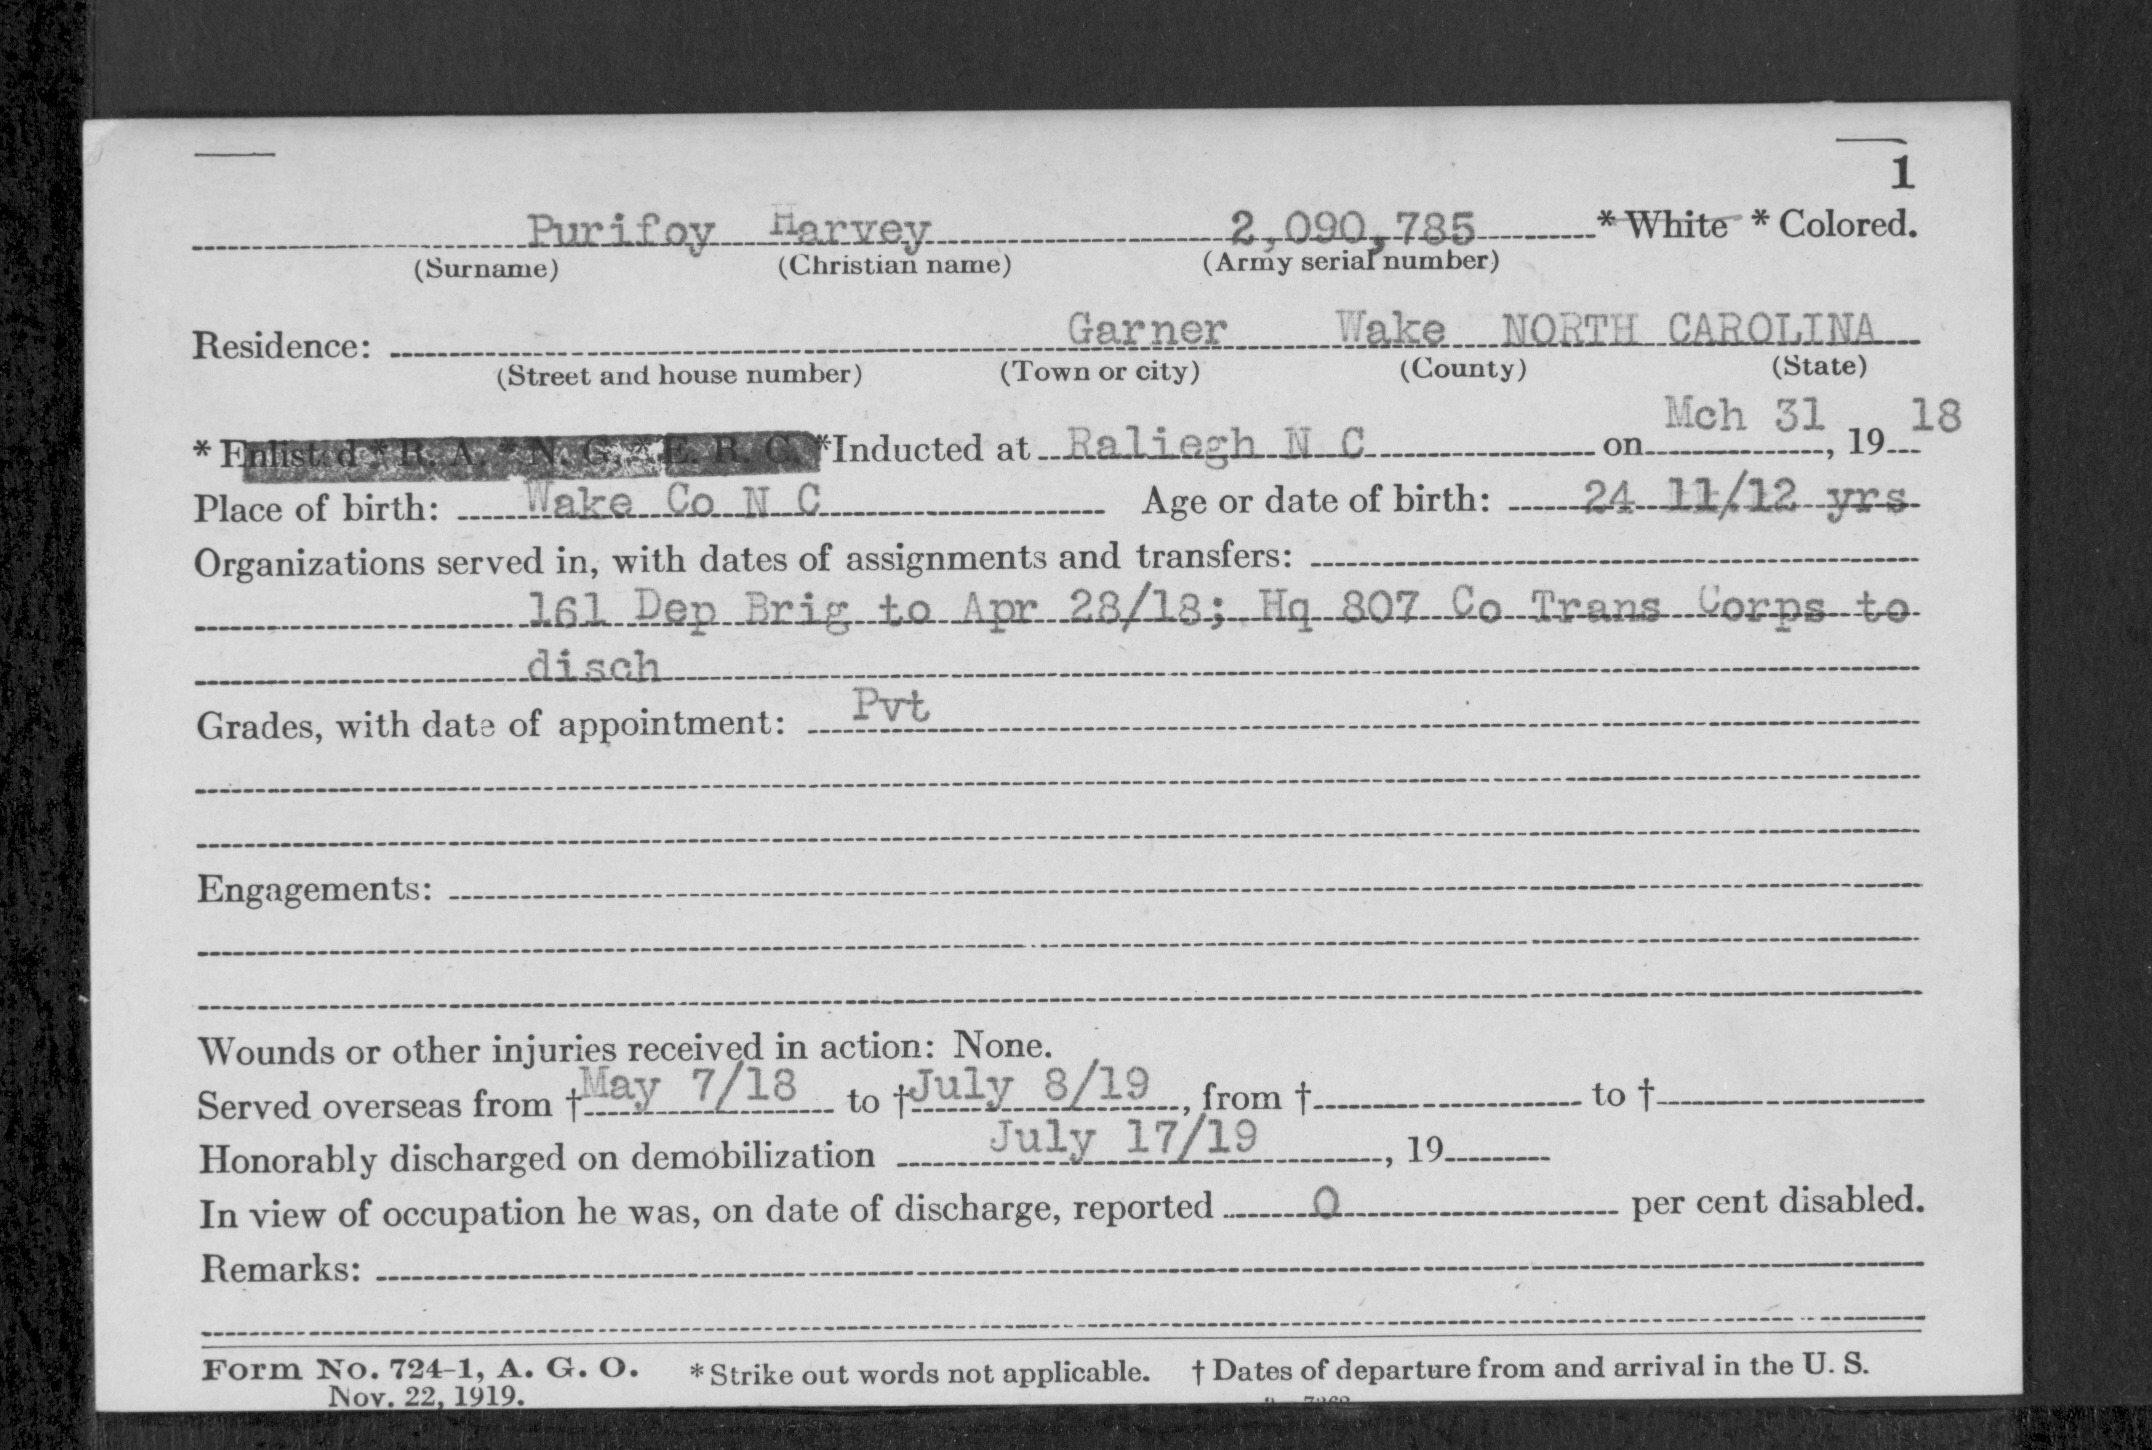 1
Purifoy Harvey 2,090,785 * White * Colored.
(Surname) (Christian name) (Army serial number)
Garner Wake NORTH CAROLINA
Residence:
(Street and house number) (Town or city) (County) (State)
Mch 31 18
* Enlisted * R. A. * N. G. * E. R. C. *Inducted at Raliegh N C on , 19
Place of birth: Wake Co N C Age or date of birth: 24 11/12 yrs
Organizations served in, with dates of assignments and transfers:
161 Dep Brig to Apr 28/18; Hq 807 Co Trans Corps to
disch
Grades, with date of appointment: Pvt
Engagements:
Wounds or other injuries received in action: None.
Served overseas from † May 7/18 to † July 8/19, from † to †
Honorably discharged on demobilization July 17/19, 19
In view of occupation he was, on date of discharge, reported 0 per cent disabled.
Remarks:
Form No. 724-1, A. G. O. * Strike out words not applicable. † Dates of departure from and arrival in the U. S.
Nov. 22, 1919.